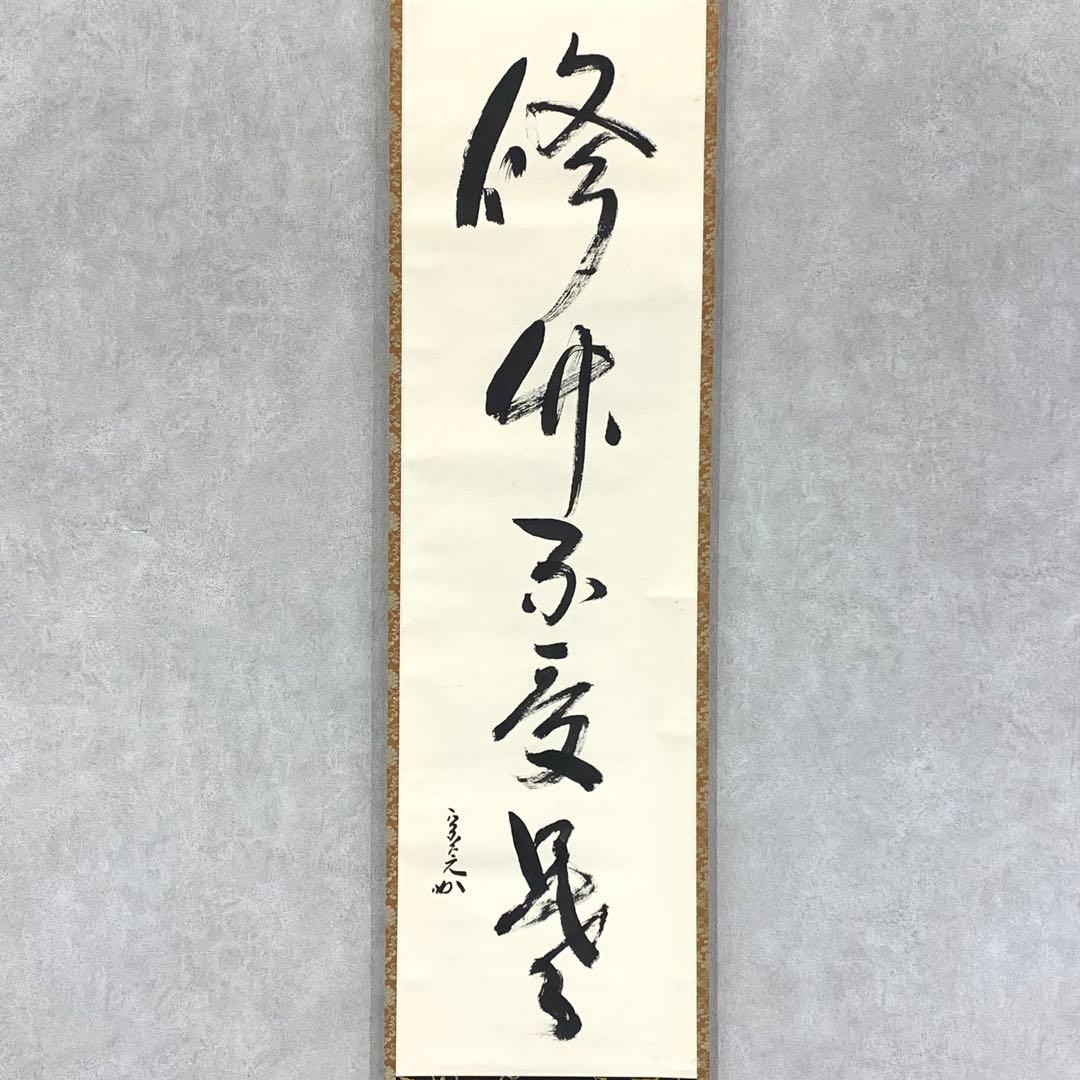 修竹不受暑